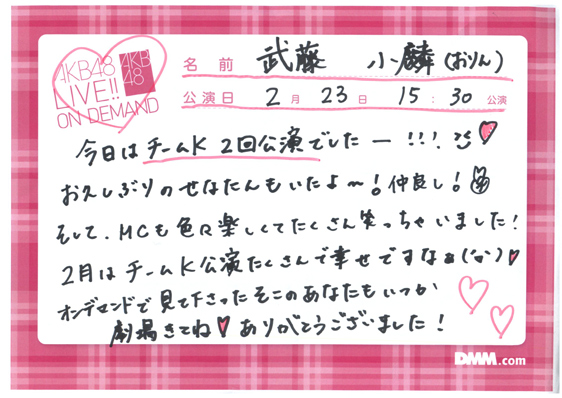 AKB48
LIVE!!
ON DEMAND
AKB
48
名前 武藤 小麟(おりん)
公演日 2月23日 15:30公演
今日はチームK 2回公演でしたー!!!
お久しぶりのせなたんもいたよ〜!仲良し!
そして、MCも色々楽しくてたくさん笑っちゃいました!
2月はチームK公演たくさんで幸せですなぁ
オンデマンドで見て下さったそこのあなたもいつか
劇場きてね ありがとうございました!
DMM.com